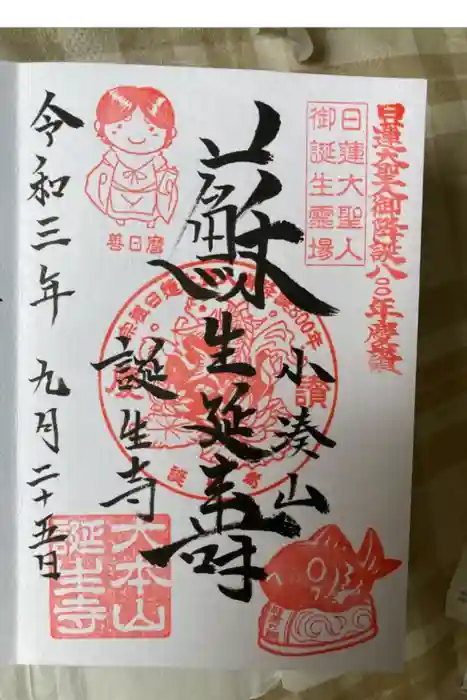 日蓮大聖人御降誕八〇〇年慶讃
日蓮大聖人
御誕生霊場
蘇生延寿
小湊山
誕生寺
善日麿
慶
讃
大本山
誕生寺
令和三年 九月二十五日